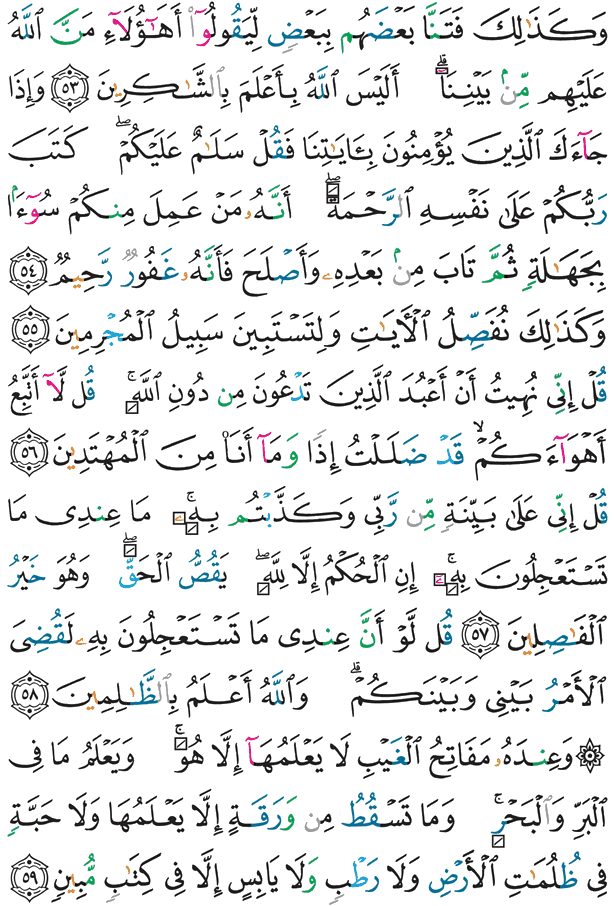 وَكَذَٰلِكَ فَتَنَّا بَعْضَهُم بِبَعْضٍ لِّيَقُولُوٓا۟ أَهَـٰٓؤُلَآءِ مَنَّ ٱللَّهُ
عَلَيْهِم مِّنۢ بَيْنِنَآ ۗ أَلَيْسَ ٱللَّهُ بِأَعْلَمَ بِٱلشَّـٰكِرِينَ ٥٣ وَإِذَا
جَآءَكَ ٱلَّذِينَ يُؤْمِنُونَ بِـَٔايَـٰتِنَا فَقُلْ سَلَـٰمٌ عَلَيْكُمْ ۖ كَتَبَ
رَبُّكُمْ عَلَىٰ نَفْسِهِ ٱلرَّحْمَةَ ۖ أَنَّهُۥ مَنْ عَمِلَ مِنكُمْ سُوٓءًۢا
بِجَهَـٰلَةٍ ثُمَّ تَابَ مِنۢ بَعْدِهِۦ وَأَصْلَحَ فَأَنَّهُۥ غَفُورٌ رَّحِيمٌ ٥٤
وَكَذَٰلِكَ نُفَصِّلُ ٱلْـَٔايَـٰتِ وَلِتَسْتَبِينَ سَبِيلُ ٱلْمُجْرِمِينَ ٥٥
قُلْ إِنِّى نُهِيتُ أَنْ أَعْبُدَ ٱلَّذِينَ تَدْعُونَ مِن دُونِ ٱللَّهِ ۚ قُل لَّآ أَتَّبِعُ
أَهْوَآءَكُمْ ۙ قَدْ ضَلَلْتُ إِذًا وَمَآ أَنَا۠ مِنَ ٱلْمُهْتَدِينَ ٥٦
قُلْ إِنِّى عَلَىٰ بَيِّنَةٍ مِّن رَّبِّى وَكَذَّبْتُم بِهِۦ ۚ مَا عِندِى مَا
تَسْتَعْجِلُونَ بِهِۦٓ ۚ إِنِ ٱلْحُكْمُ إِلَّا لِلَّهِ ۖ يَقُصُّ ٱلْحَقَّ ۖ وَهُوَ خَيْرُ
ٱلْفَـٰصِلِينَ ٥٧ قُل لَّوْ أَنَّ عِندِى مَا تَسْتَعْجِلُونَ بِهِۦ لَقُضِىَ
ٱلْأَمْرُ بَيْنِى وَبَيْنَكُمْ ۗ وَٱللَّهُ أَعْلَمُ بِٱلظَّـٰلِمِينَ ٥٨
۞ وَعِندَهُۥ مَفَاتِحُ ٱلْغَيْبِ لَا يَعْلَمُهَآ إِلَّا هُوَ ۚ وَيَعْلَمُ مَا فِى
ٱلْبَرِّ وَٱلْبَحْرِ ۚ وَمَا تَسْقُطُ مِن وَرَقَةٍ إِلَّا يَعْلَمُهَا وَلَا حَبَّةٍ
فِى ظُلُمَـٰتِ ٱلْأَرْضِ وَلَا رَطْبٍ وَلَا يَابِسٍ إِلَّا فِى كِتَـٰبٍ مُّبِينٍ ٥٩